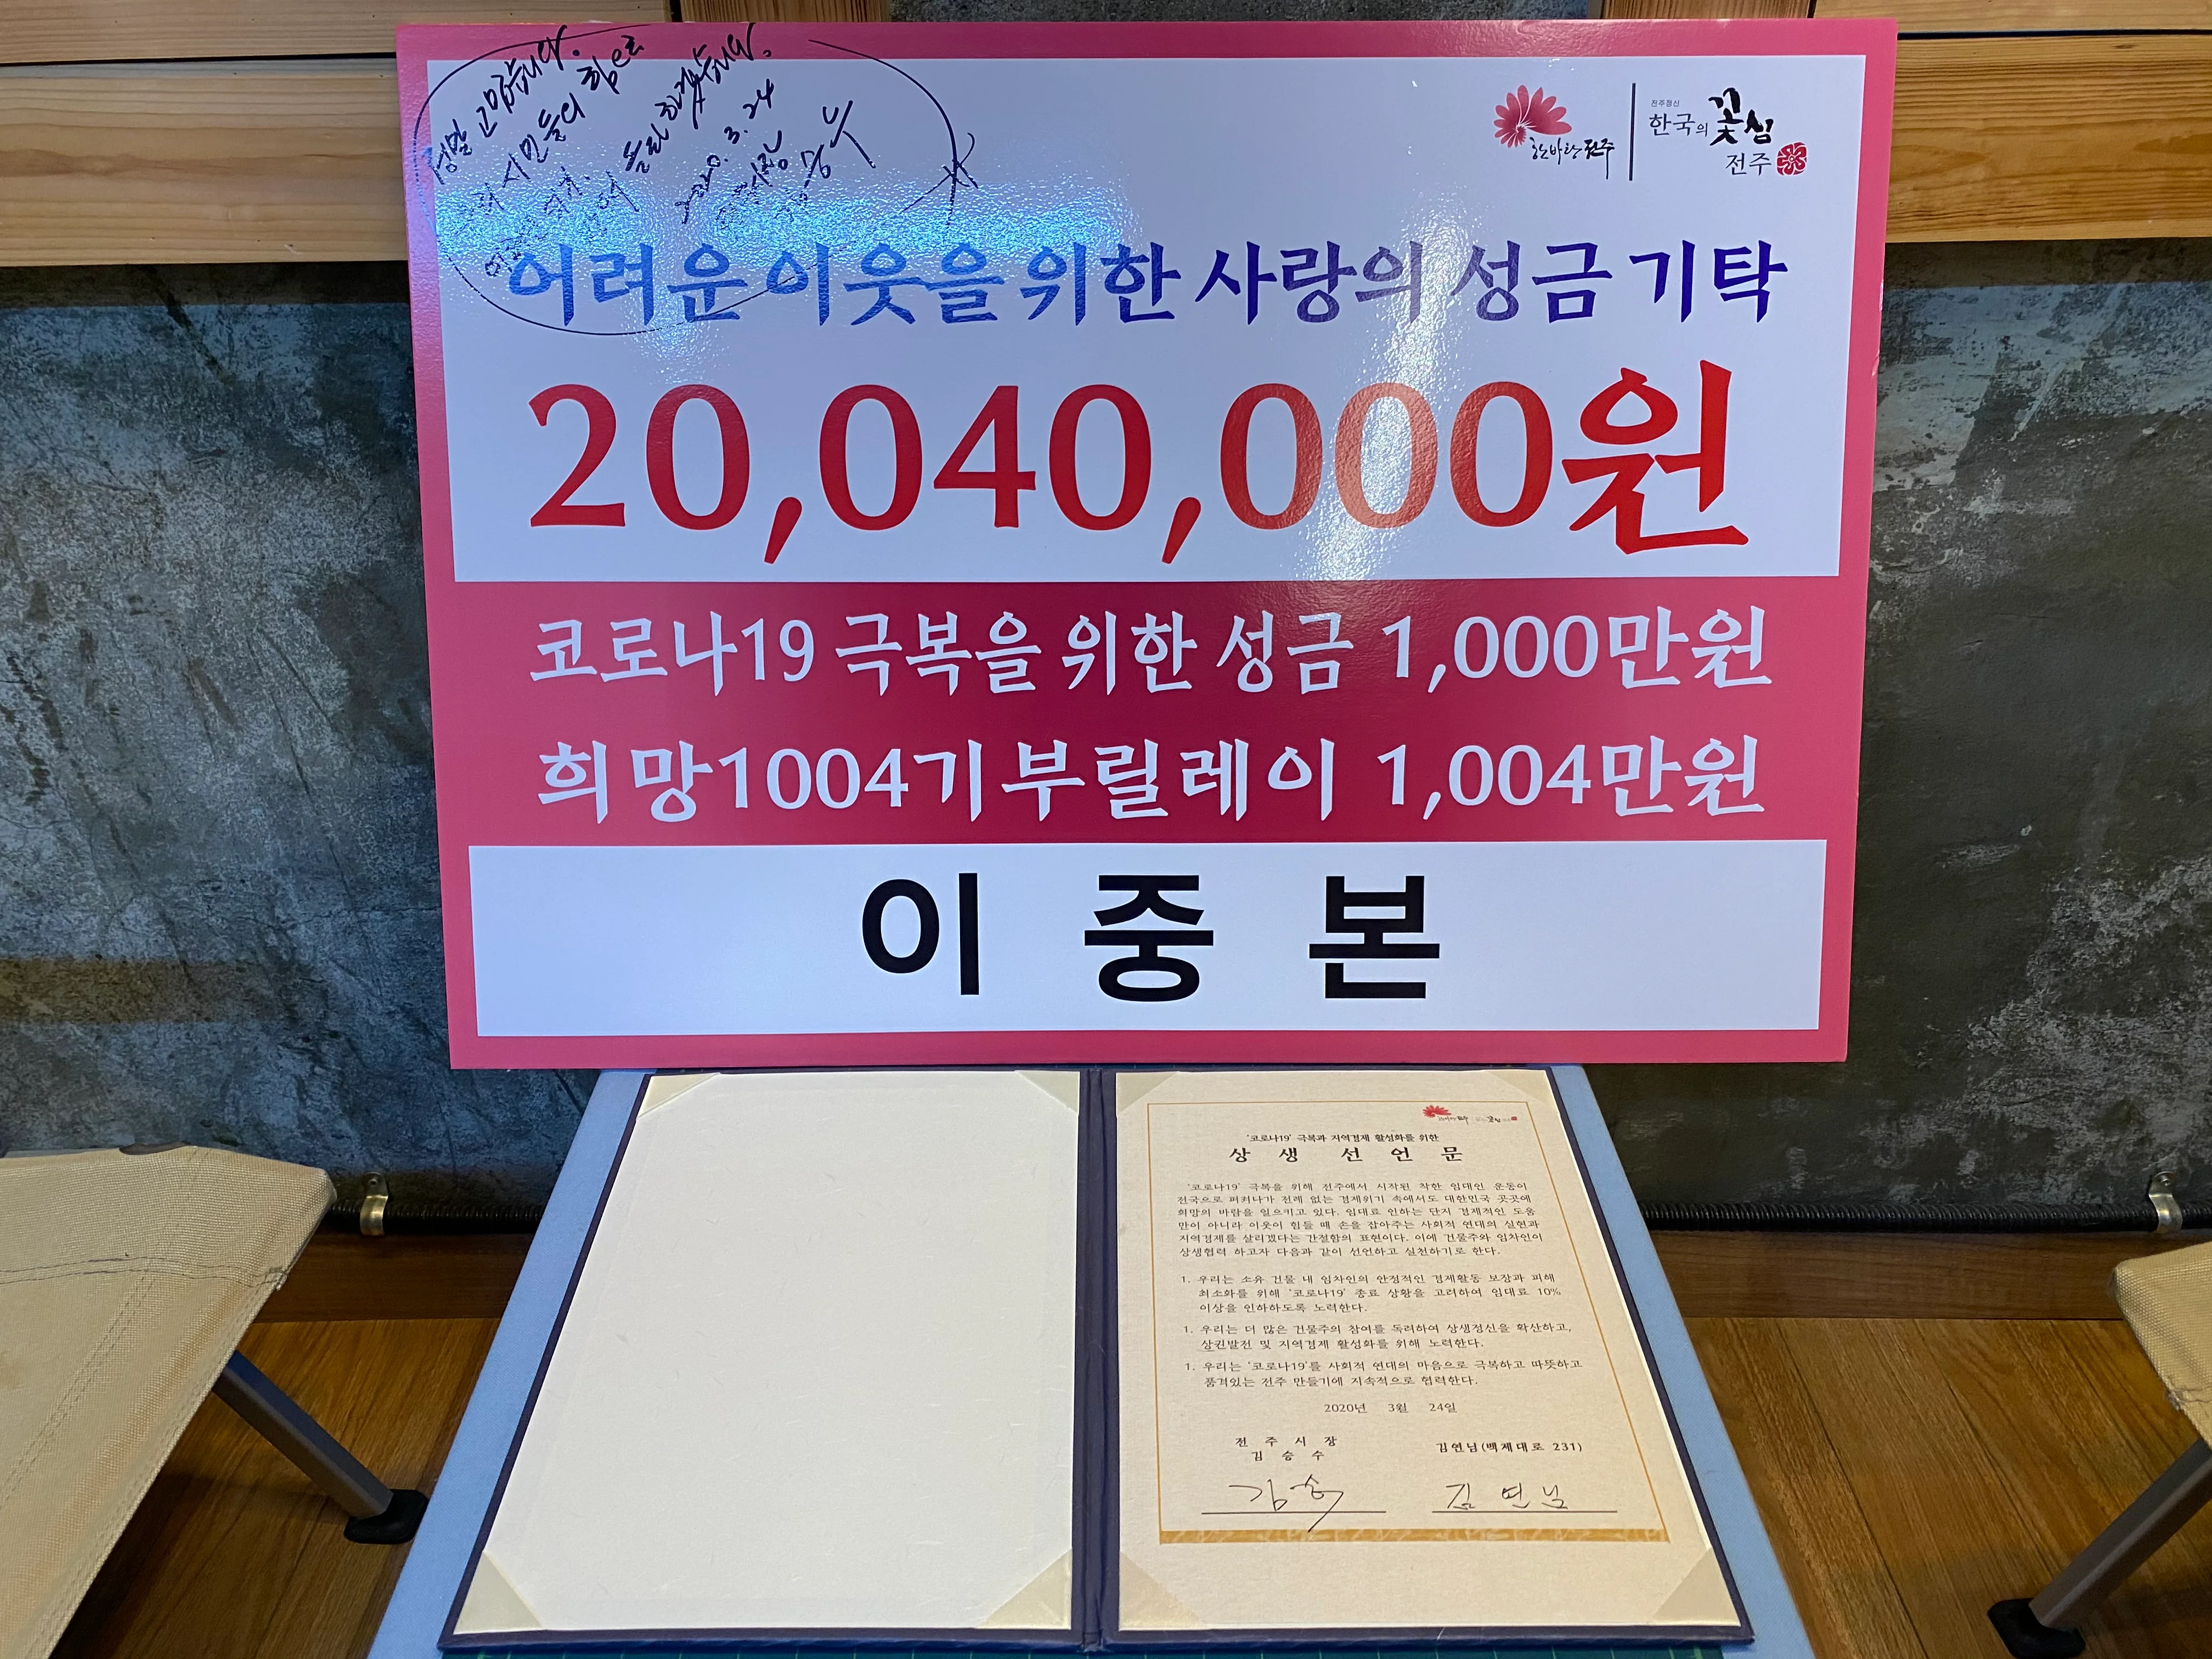 정말 고맙습니다.
우리 시민들의 힘으로
2020. 3. 24
김승수
한바탕 전주
전주정신
한국의 꽃심
전주
어려운 이웃을 위한 사랑의 성금 기탁
20,040,000원
코로나19 극복을 위한 성금 1,000만원
희망1004기부릴레이 1,004만원
이 중 본
'코로나19' 극복과 지역경제 활성화를 위한
상 생 선 언 문
'코로나19' 극복을 위해 전주에서 시작된 착한 임대인 운동이
전국으로 퍼져나가 전례 없는 경제위기 속에서도 대한민국 곳곳에
희망의 바람을 일으키고 있다. 임대료 인하는 단지 경제적인 도움
만이 아니라 이웃이 힘들 때 손을 잡아주는 사회적 연대의 실현과
지역경제를 살리겠다는 간절함의 표현이다. 이에 건물주와 임차인이
상생협력 하고자 다음과 같이 선언하고 실천하기로 한다.
1. 우리는 소유 건물 내 임차인의 안정적인 경제활동 보장과 피해
최소화를 위해 '코로나19' 종료 상황을 고려하여 임대료 10%
이상을 인하하도록 노력한다.
1. 우리는 더 많은 건물주의 참여를 독려하여 상생정신을 확산하고,
상권발전 및 지역경제 활성화를 위해 노력한다.
1. 우리는 '코로나19'를 사회적 연대의 마음으로 극복하고 따뜻하고
품격있는 전주 만들기에 지속적으로 협력한다.
2020년 3월 24일
전 주 시 장
김 승 수
김연님(백제대로 231)
김승수
김연님